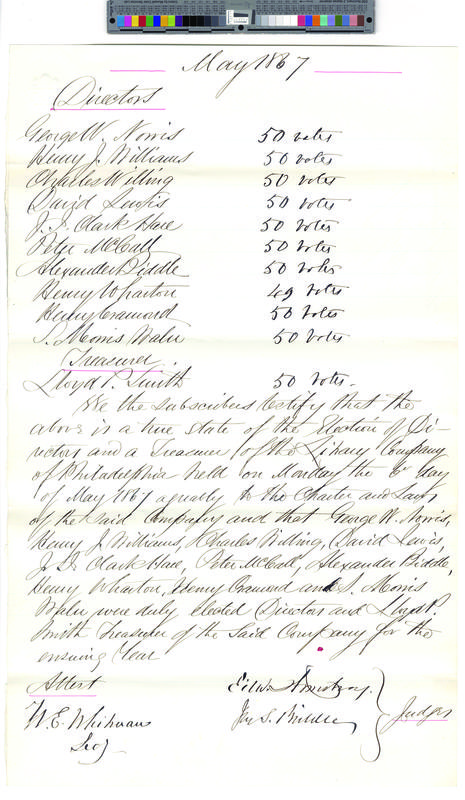 May 1867
Directors
George W. Norris 50 votes
Henry J. Williams 50 votes
Charles Willing 50 votes
David Lewis 50 votes
J. I. Clark Hare 50 votes
Peter McCall 50 votes
Alexander Biddle 50 votes
Henry Wharton 49 votes
Henry Cramond 50 votes
S. Morris Waln 50 votes
Treasurer.
Lloyd P. Smith 50 votes.
We the subscribers certify that the
above is a true state of the election of Di-
rectors and a Treasurer of the Library Company
of Philadelphia held on Monday the 6th day
of May 1867 agreeably to the Charter and Laws
of the said Company and that George W. Norris,
Henry J. Williams, Charles Willing, David Lewis,
J. I. Clark Hare, Peter McCall, Alexander Biddle,
Henry Wharton, Henry Cramond and S. Morris
Waln were duly elected Directors and Lloyd P.
Smith Treasurer of the said Company for the
ensuing Year
Attest Armstrong.
W. E. Whitman S. Biddle Judges
Secy